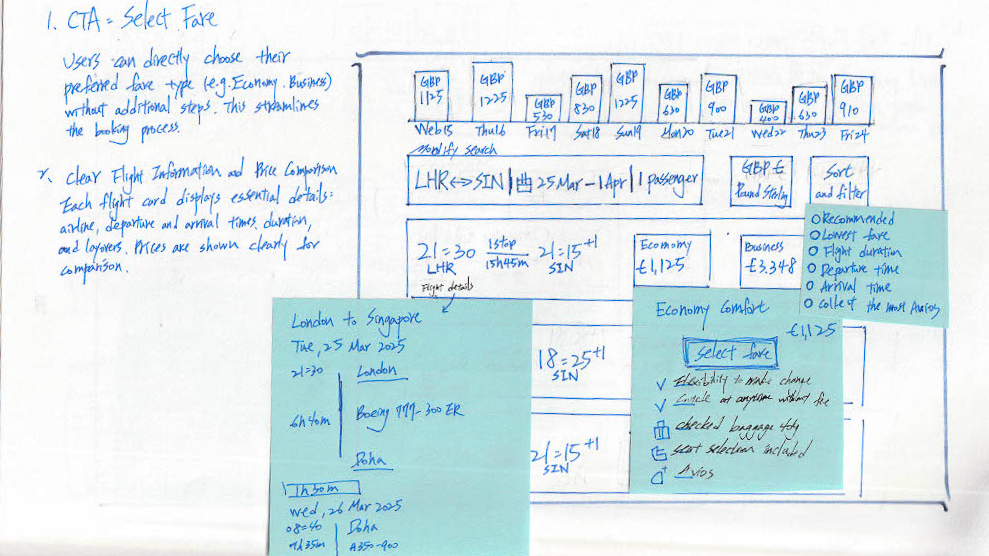 1. CTA = Select Fare
Users can directly choose their
preferred fare type (e.g. Economy. Business)
without additional steps. This streamlines
the booking process.
2. Clear Flight Information and Price Comparison
Each flight card displays essential details:
airline, departure and arrival times, duration,
and layovers. Prices are shown clearly for
comparison.
GBP 1125
GBP 1225
GBP 530
GBP 830
GBP 1225
GBP 630
GBP 900
GBP 400
GBP 630
GBP 910
Web15 Thu16 Fri17 Sat18 Sun19 Mon20 Tue21 Wed22 Thu23 Fri24
Modify search
LHR <-> SIN | 25 Mar - 1 Apr | 1 passenger
GBP £
Pound Sterling
Sort
and filter
Recommended
Lowest fare
Flight duration
Departure time
Arrival time
Collect the most Avios
21=30 1 stop 15h45m 21=15 +1
LHR SIN
Flight details
Economy
£1,125
Business
£3,348
London to Singapore
Tue, 25 Mar 2025
21=30 London
6h40m Boeing 777-300 ER
Doha
1h30m
Wed, 26 Mar 2025
08=40 Doha
7h35m A350-900
18=25 +1
SIN
21=15 +1
SIN
Economy Comfort
£1,125
Select fare
Flexibility to make change
at anytime without fee
checked baggage
seat selection included
Avios